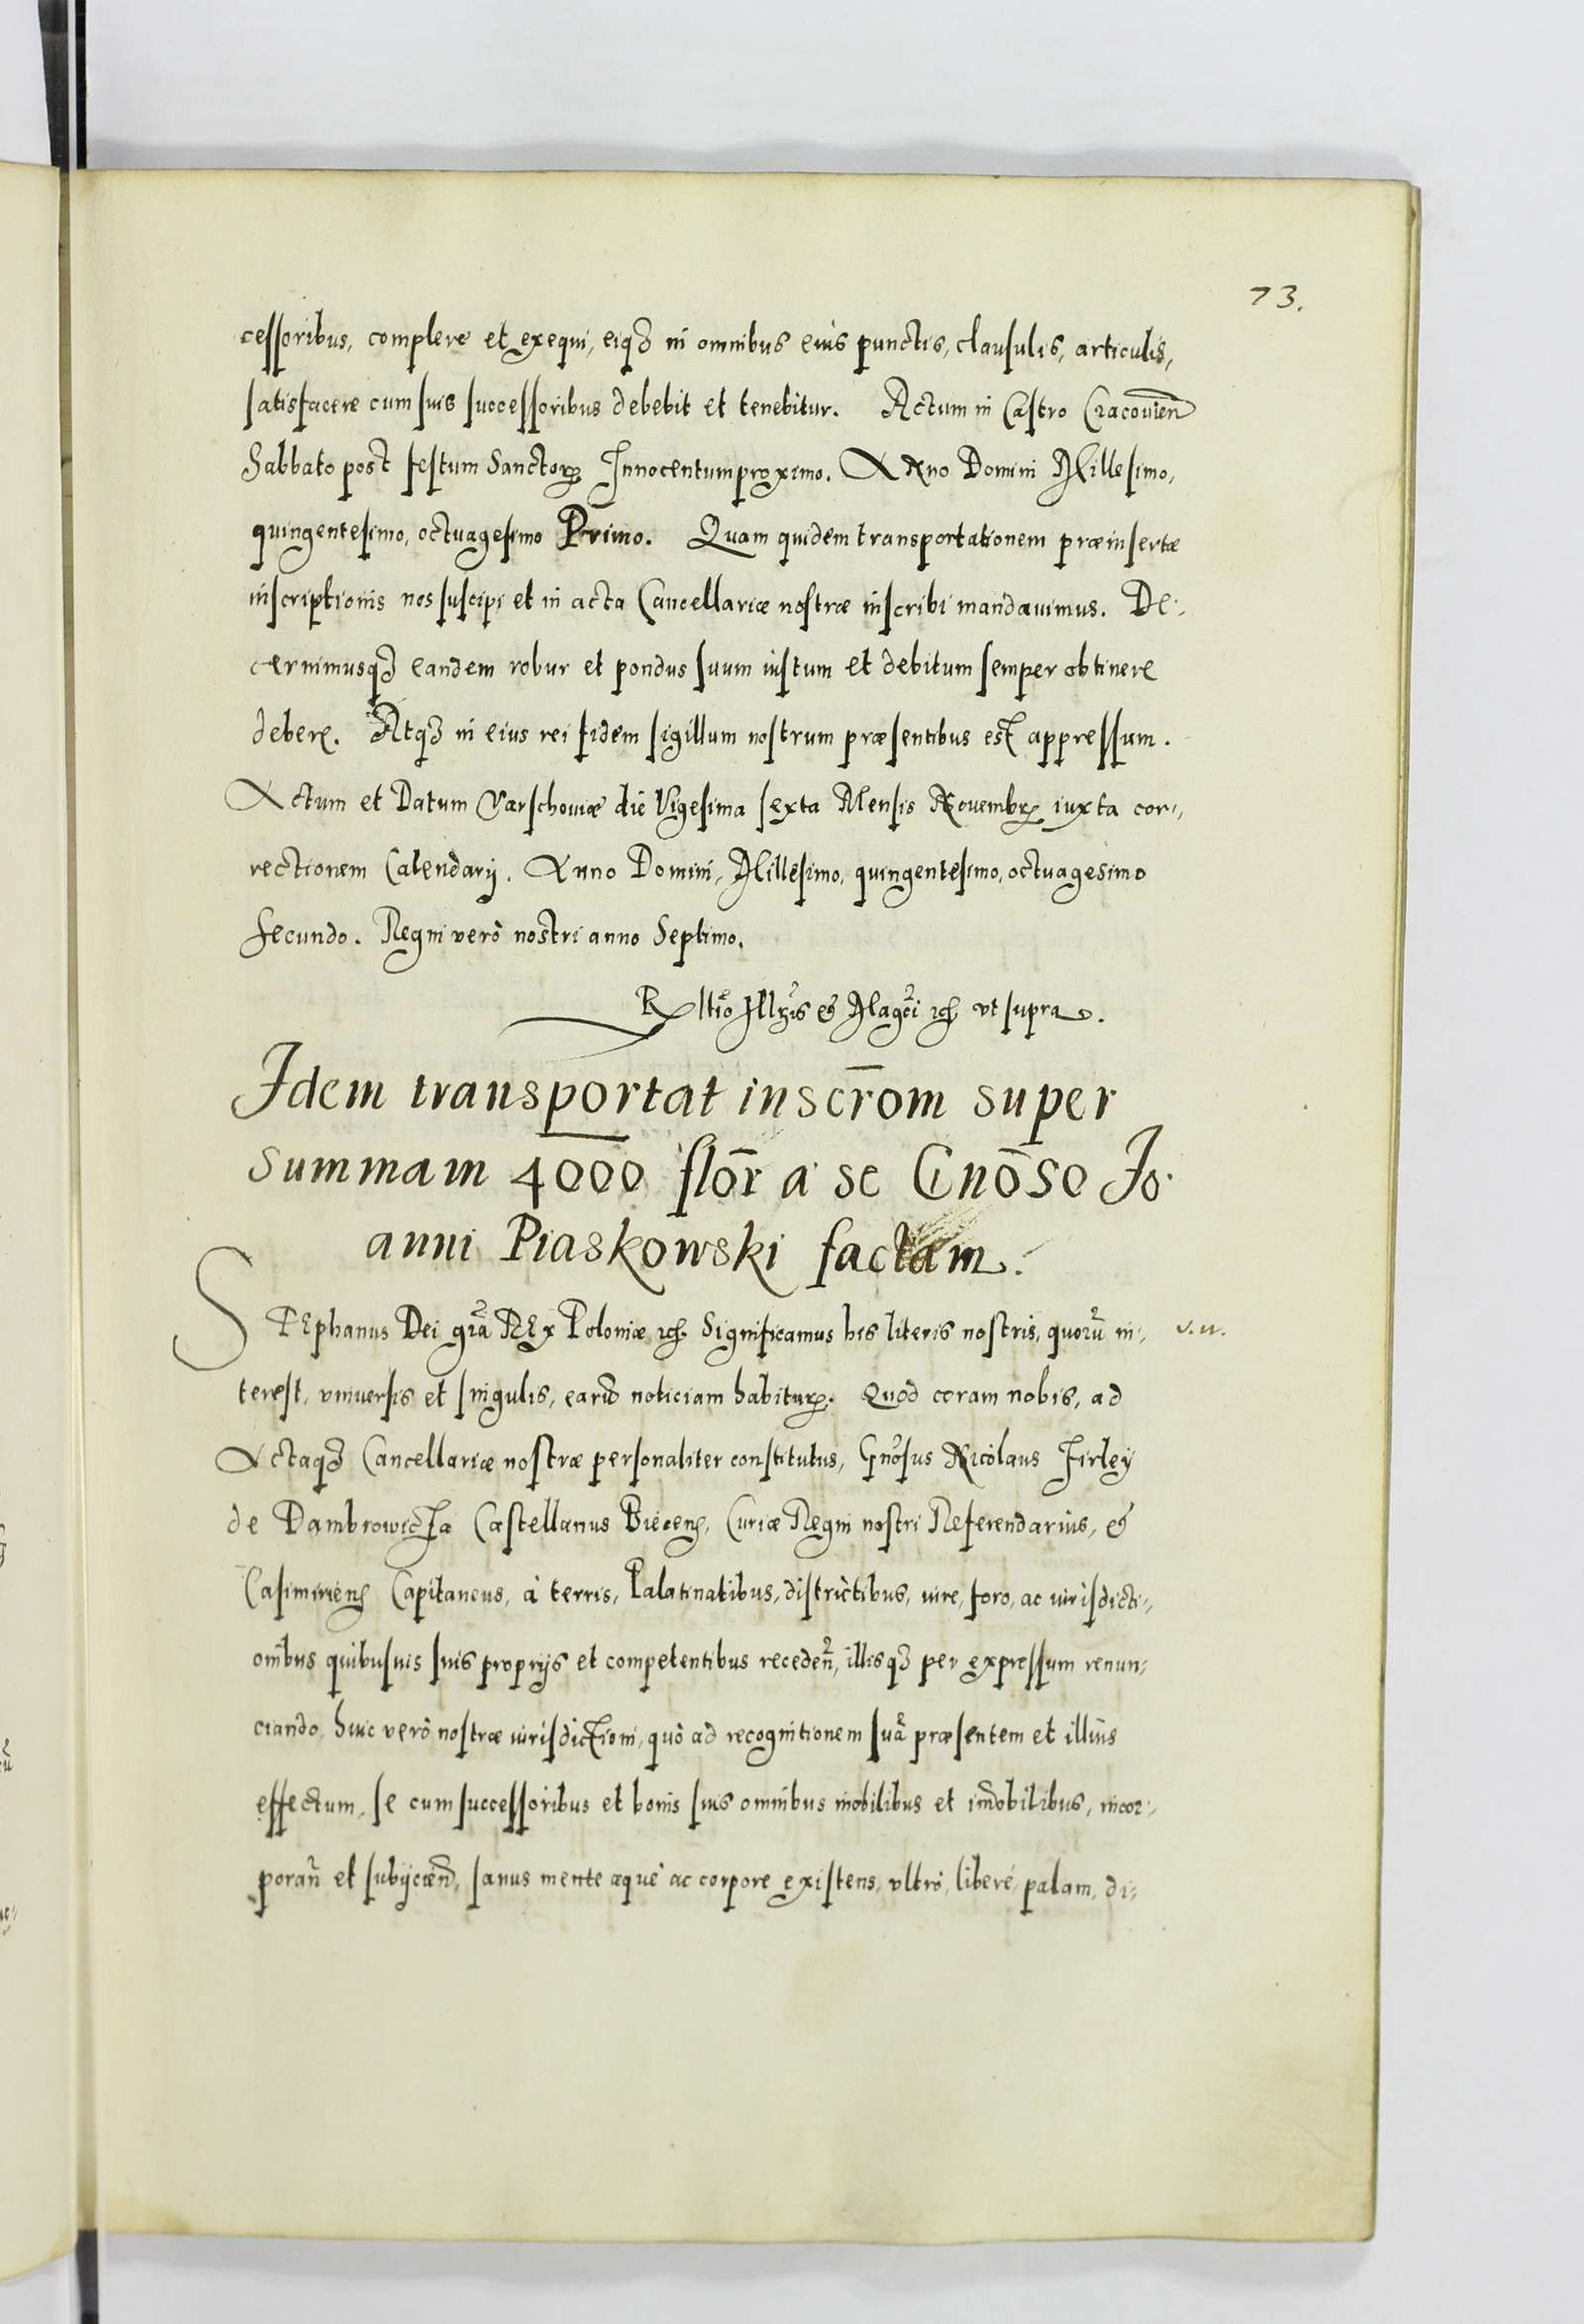 73.
cessoribus, complere et exequi, eiqꝫ in omnibus eius punctis, clausulis, articulis,
satisfacere cum suis successoribus debebit et tenebitur. Actum in Castro Cracovien̄
Sabbato post festum Sanctorꝝ Innocentum proximo. Anno Domini Millesimo,
quingentesimo, octuagesimo Primo. Quam quidem transportationem præinsertæ
inscriptionis nos suscipi et in acta Cancellariæ nostræ inscribi mandavimus. De-
cernimusqꝫ eandem robur et pondus suum iustum et debitum semper obtinere
debere. Atqꝫ in eius rei fidem sigillum nostrum præsentibus est appressum.
Actum et Datum Varschoviæ die Vigesima sexta Mensis Novembrꝭ iuxta cor-
rectionem Calendarij. Anno Domini, Millesimo, quingentesimo, octuagesimo
secundo. Regni verò nostri anno Septimo.
ut supra.
Idem transportat inscr̄om super
summam 4000 flor̄ a se Gnōso Jo
anni Piaskowski factam.
STEphanus Dei gr̄a REx Poloniæ ꝛc̄ Significamus his literis nostris, quorū in- v.u.
terest, universis et singulis, earū noticiam habiturꝭ. Quod coram nobis, ad
Actaqꝫ Cancellariæ nostræ personaliter constitutus, Gnōsus Nicolaus Firley
de Dambrowicza Castellanus Biecenꝭ, Curiæ Regni nostri Referendarius, &
Casimirienꝭ Capitaneus, à terris, Palatinatibus, districtibus, iure, foro, ac iurisdicti-
onibus quibusuis suis proprijs et competentibus receden̄, illisqꝫ per expressum renun-
ciando, huic verò nostræ iurisdictioni, quò ad recognitionem suā præsentem et illius
effectum, se cum successoribus et bonis suis omnibus mobilibus et im̄obilibus, incor-
poran̄ et subijcien̄, sanus mente æquè ac corpore existens, ultrò, liberé, palam, di-